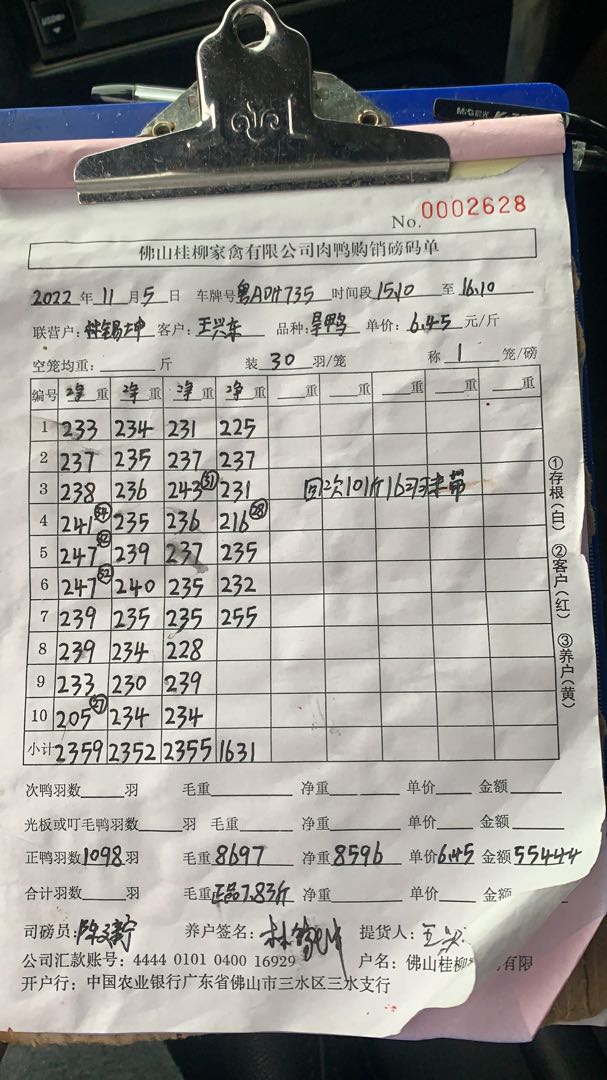 No. 0002628
佛山桂柳家禽有限公司肉鸭购销磅码单
2022 年 11 月 5 日 车牌号 粤ADH735 时间段 15.10 至 16.10
联营户: 客户: 王兴东 品种: 旱鸭 单价: 6.45 元/斤
空笼均重: 斤 装 30 羽/笼 称 1 笼/磅
编号 净重 净重 净重 净重 重 重 重 重 重
1 233 234 231 225
2 237 235 237 237
3 238 236 243 31 231 回次101斤16羽未带
4 241 34 235 236 216 28
5 247 32 239 237 235
6 247 32 240 235 232
7 239 235 235 255
8 239 234 228
9 233 230 239
10 205 27 234 234
小计 2359 2352 2355 1631
①存根(白) ②客户(红) ③养户(黄)
次鸭羽数 羽 毛重 净重 单价 金额
光板或叮毛鸭羽数 羽 毛重 净重 单价 金额
正鸭羽数 1098 羽 毛重 8697 净重 8596 单价 6.45 金额 55444
合计羽数 羽 毛重 正品7.83斤 净重 单价 金额
司磅员: 养户签名: 提货人: 王
公司汇款账号: 4444 0101 0400 16929 户名: 佛山桂柳 有限
开户行: 中国农业银行广东省佛山市三水区三水支行